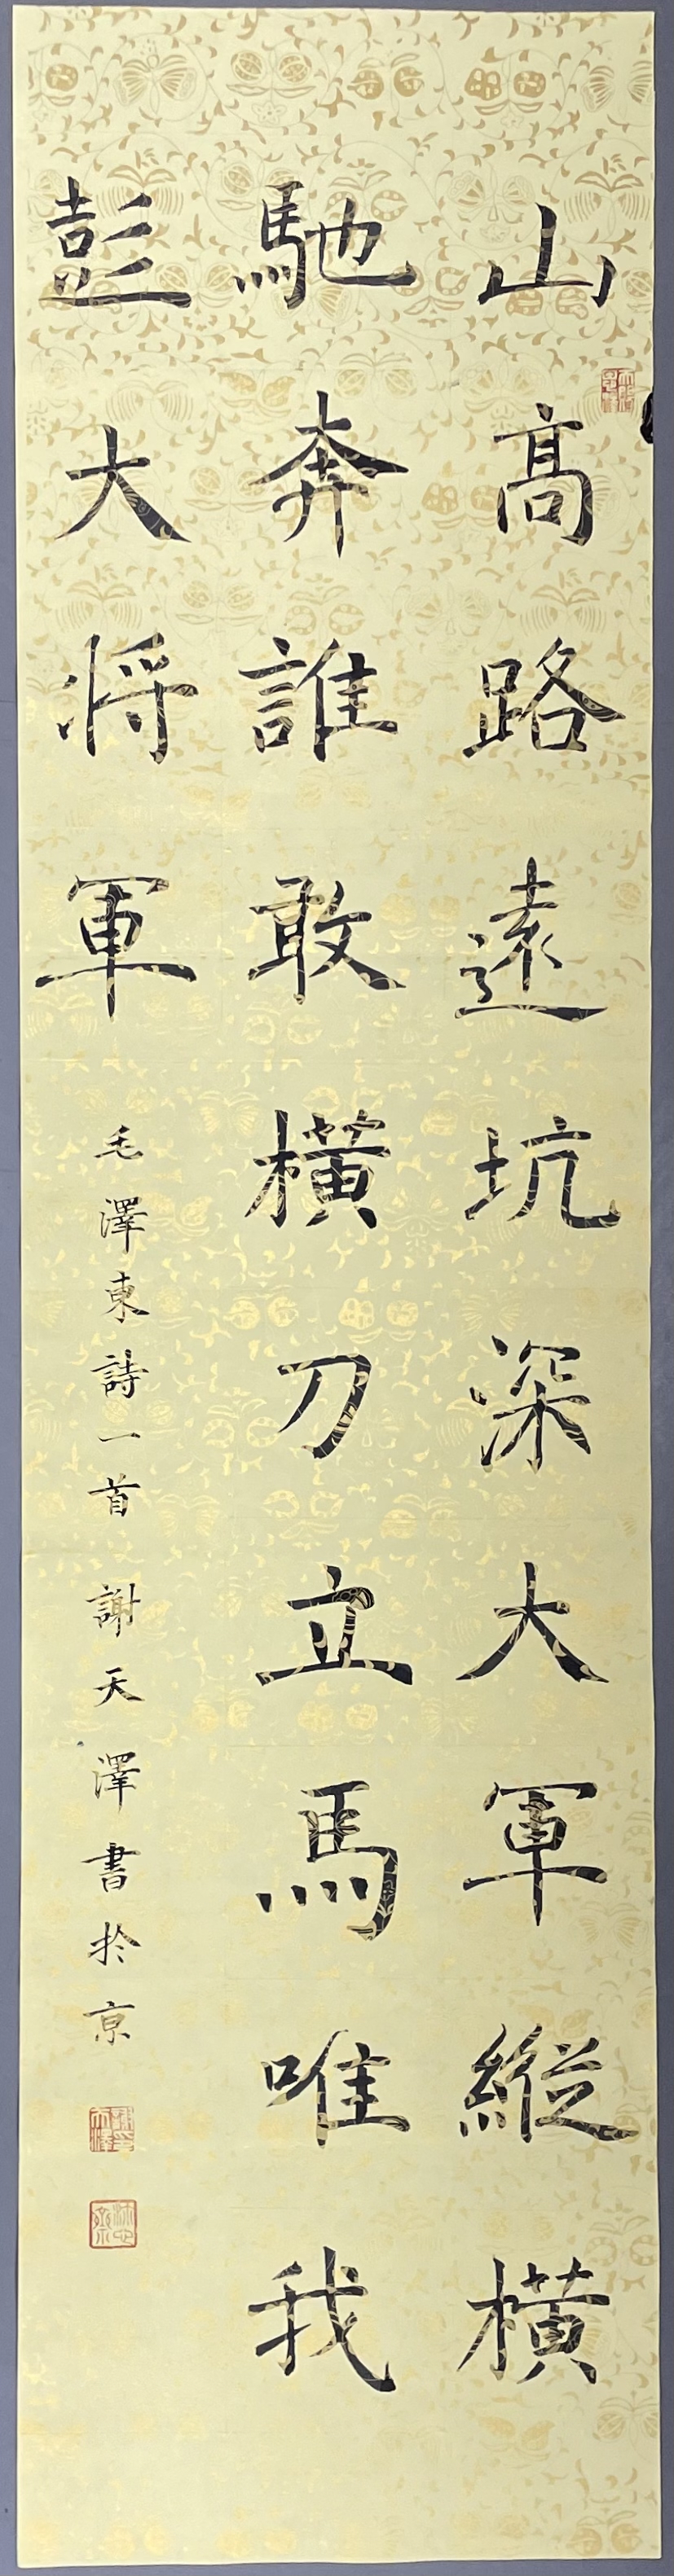 山高路遠坑深大軍縱橫
馳奔誰敢橫刀立馬唯我
彭大将軍
毛澤東詩一首 謝天澤書於京